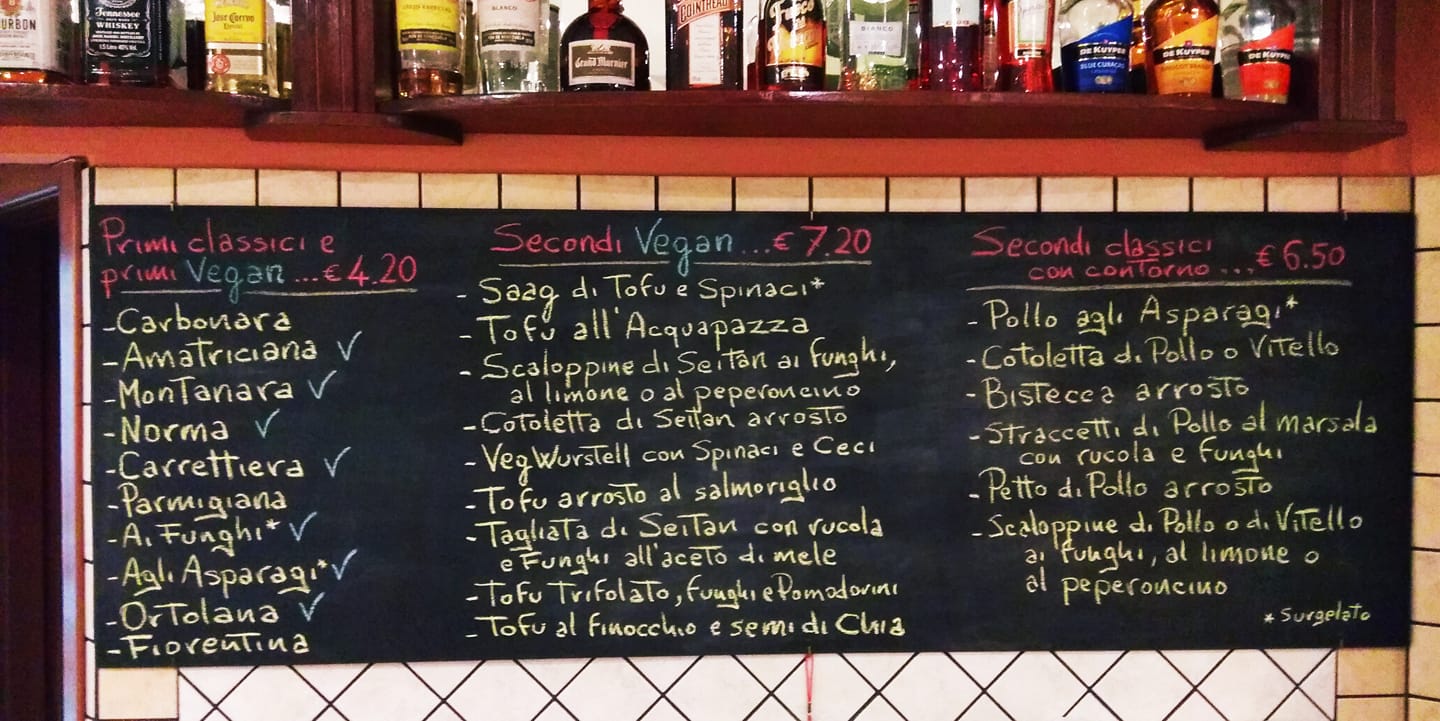 BOURBON
Tennessee
WHISKEY
Jose Cuervo
Especial
BLANCO
Grand Marnier
COINTREAU
BIANCO
DE KUYPER
BLUE CURAÇAO
DE KUYPER
DE KUYPER
Primi classici e
primi Vegan ... € 4.20
- Carbonara
- Amatriciana ✓
- Montanara ✓
- Norma ✓
- Carrettiera ✓
- Parmigiana
- Ai Funghi* ✓
- Agli Asparagi* ✓
- Ortolana ✓
- Fiorentina
Secondi Vegan ... € 7.20
- Saag di Tofu e Spinaci*
- Tofu all'Acquapazza
- Scaloppine di Seitan ai funghi,
al limone o al peperoncino
- Cotoletta di Seitan arrosto
- Veg Wurstell con Spinaci e Ceci
- Tofu arrosto al salmoriglio
- Tagliata di Seitan con rucola
e Funghi all'aceto di mele
- Tofu Trifolato, funghi e Pomodorini
- Tofu al finocchio e semi di Chia
Secondi classici
con contorno ... € 6.50
- Pollo agli Asparagi*
- Cotoletta di Pollo o Vitello
- Bistecca arrosto
- Straccetti di Pollo al marsala
con rucola e funghi
- Petto di Pollo arrosto
- Scaloppine di Pollo o di Vitello
ai funghi, al limone o
al peperoncino
* Surgelato